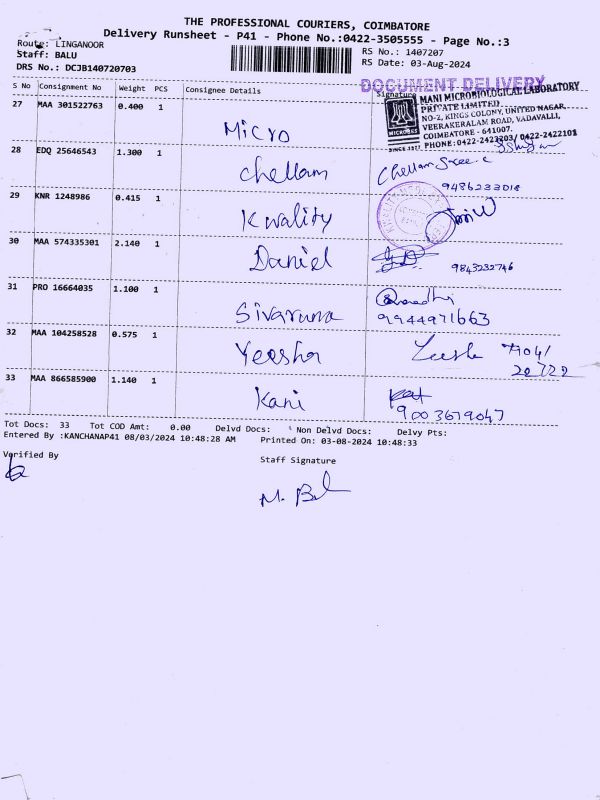 THE PROFESSIONAL COURIERS, COIMBATORE
Delivery Runsheet - P41 - Phone No.:0422-3505555 - Page No.:3
Route: LINGANOOR
RS No.: 1407207
Staff: BALU
RS Date: 03-Aug-2024
DRS No.: DCJB140720703
DOCUMENT DELIVERY
S No Consignment No Weight PCS Consignee Details Signature
MANI MICROBIOLOGICAL LABORATORY
PRIVATE LIMITED
NO-2, KINGS COLONY, UNITED NAGAR,
VEERAKERALAM ROAD, VADAVALLI,
COIMBATORE - 641007.
PHONE: 0422-2423203/ 0422-2422101
MICROBES
SINCE 1977
27 MAA 301522763 0.400 1 Micro
28 EDQ 25646543 1.300 1 Chellam Chellam
9486233018
29 KNR 1248986 0.415 1 Kwality
30 MAA 574335301 2.140 1 Daniel 9843232746
31 PRO 16664035 1.100 1 Sivaruna
9944971663
32 MAA 104258528 0.575 1 Yeesha 77041
20722
33 MAA 866585900 1.140 1 Kani
9003679047
Tot Docs: 33 Tot COD Amt: 0.00 Delvd Docs: Non Delvd Docs: Delvy Pts:
Entered By :KANCHANAP41 08/03/2024 10:48:28 AM Printed On: 03-08-2024 10:48:33
Verified By
Staff Signature